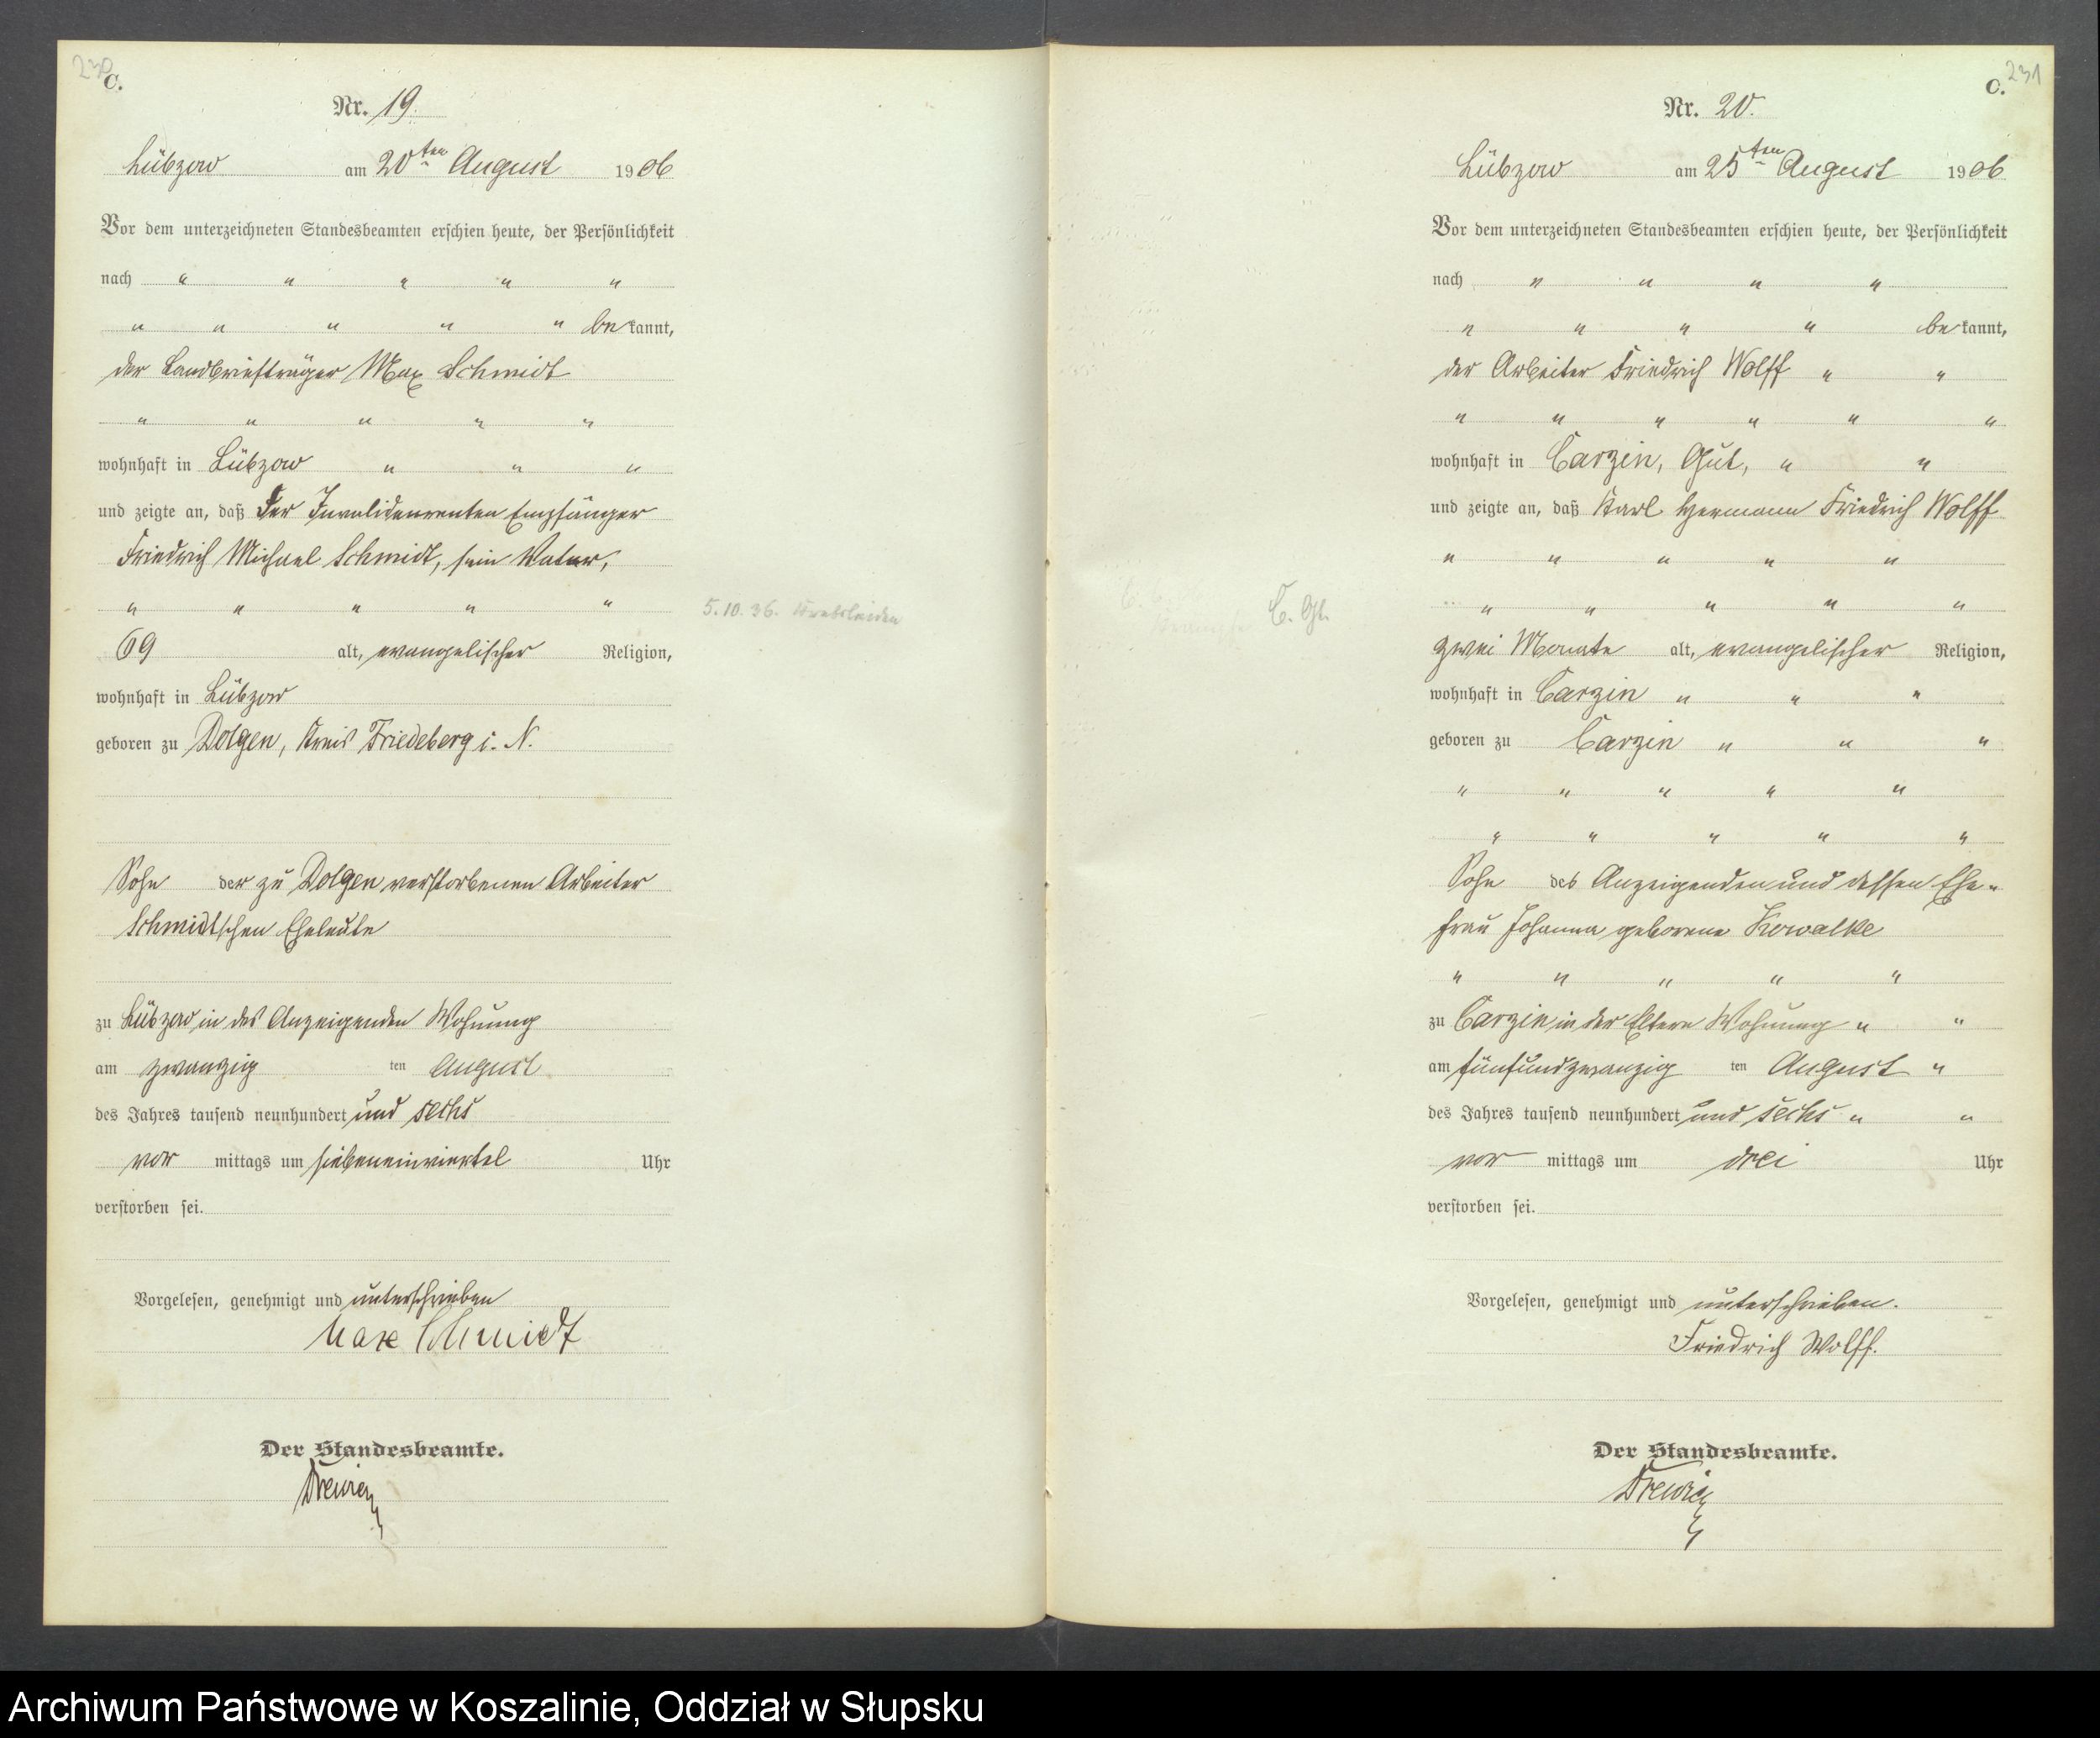 230
C.
Nr. 19.
Lübzow am 20ten August 1906
Vor dem unterzeichneten Standesbeamten erschien heute, der Persönlichkeit
nach " " " " "
" " " " " bekannt,
der Landbriefträger Max Schmidt
" " " " "
wohnhaft in Lübzow " " "
und zeigte an, daß der Invalidenrenten Empfänger
Friedrich Michael Schmidt, sein Vater,
" " " " "
5.10.36. Krebsleiden
69 alt, evangelischer Religion,
wohnhaft in Lübzow
geboren zu Dolgen, Kreis Friedeberg i. N.
Sohn der zu Dolgen verstorbenen Arbeiter
Schmidtschen Eheleute
zu Lübzow in des Anzeigenden Wohnung
am zwanzig ten August
des Jahres tausend neunhundert und sechs
vor mittags um siebeneinviertel Uhr
verstorben sei.
Vorgelesen, genehmigt und unterschrieben
Max Schmidt
Der Standesbeamte.
231
C.
Nr. 20.
Lübzow am 25ten August 1906
Vor dem unterzeichneten Standesbeamten erschien heute, der Persönlichkeit
nach " " " "
" " " " bekannt,
der Arbeiter Friedrich Wolff " "
" " " " " "
wohnhaft in Carzin, Gut, " "
und zeigte an, daß Karl Hermann Friedrich Wolff
" " " " "
" " " " "
zwei Monate alt, evangelischer Religion,
wohnhaft in Carzin " " "
geboren zu Carzin " " "
" " " " "
" " " " "
Sohn des Anzeigenden und dessen Ehe-
frau Johanna geborene Kowalke
" " " " "
zu Carzin in der Eltern Wohnung " "
am fünfundzwanzig ten August "
des Jahres tausend neunhundert und sechs " "
vor mittags um drei Uhr
verstorben sei.
Vorgelesen, genehmigt und unterschrieben.
Friedrich Wolff.
Der Standesbeamte.
Archiwum Państwowe w Koszalinie, Oddział w Słupsku